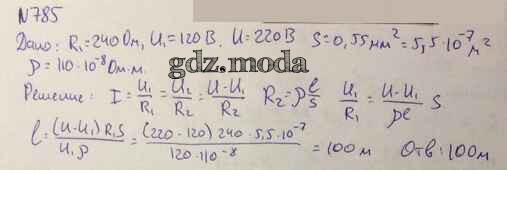 N785
Дано: R₁=240 Ом, U₁=120 В. U=220 В S=0,55 мм²=5,5·10⁻⁷ м²
ρ=110·10⁻⁸ Ом·м.
gdz.moda
Решение: I=U₁/R₁=U₂/R₂=U-U₁/R₂ R₂=ρ l/S U₁/R₁=U-U₁/ρl S
l=(U-U₁)R₁S/U₁ρ=(220-120)240·5,5·10⁻⁷/120·110⁻⁸=100 м Отв:100м